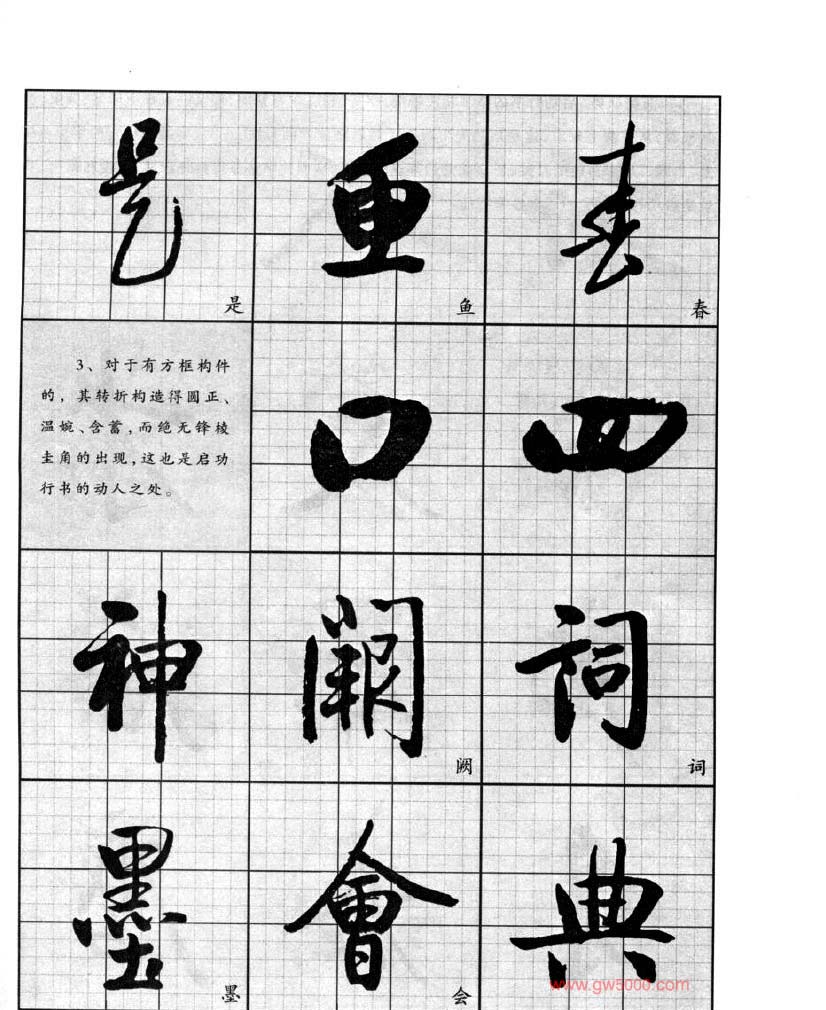 是 鱼 春
是 鱼 春
3、对于有方框构件
的，其转折构造得圆正、
温婉、含蓄，而绝无锋棱
圭角的出现，这也是启功
行书的动人之处。
口 四
神 闕 词
阙 词
墨 會 典
墨 会
www.gw5000.com